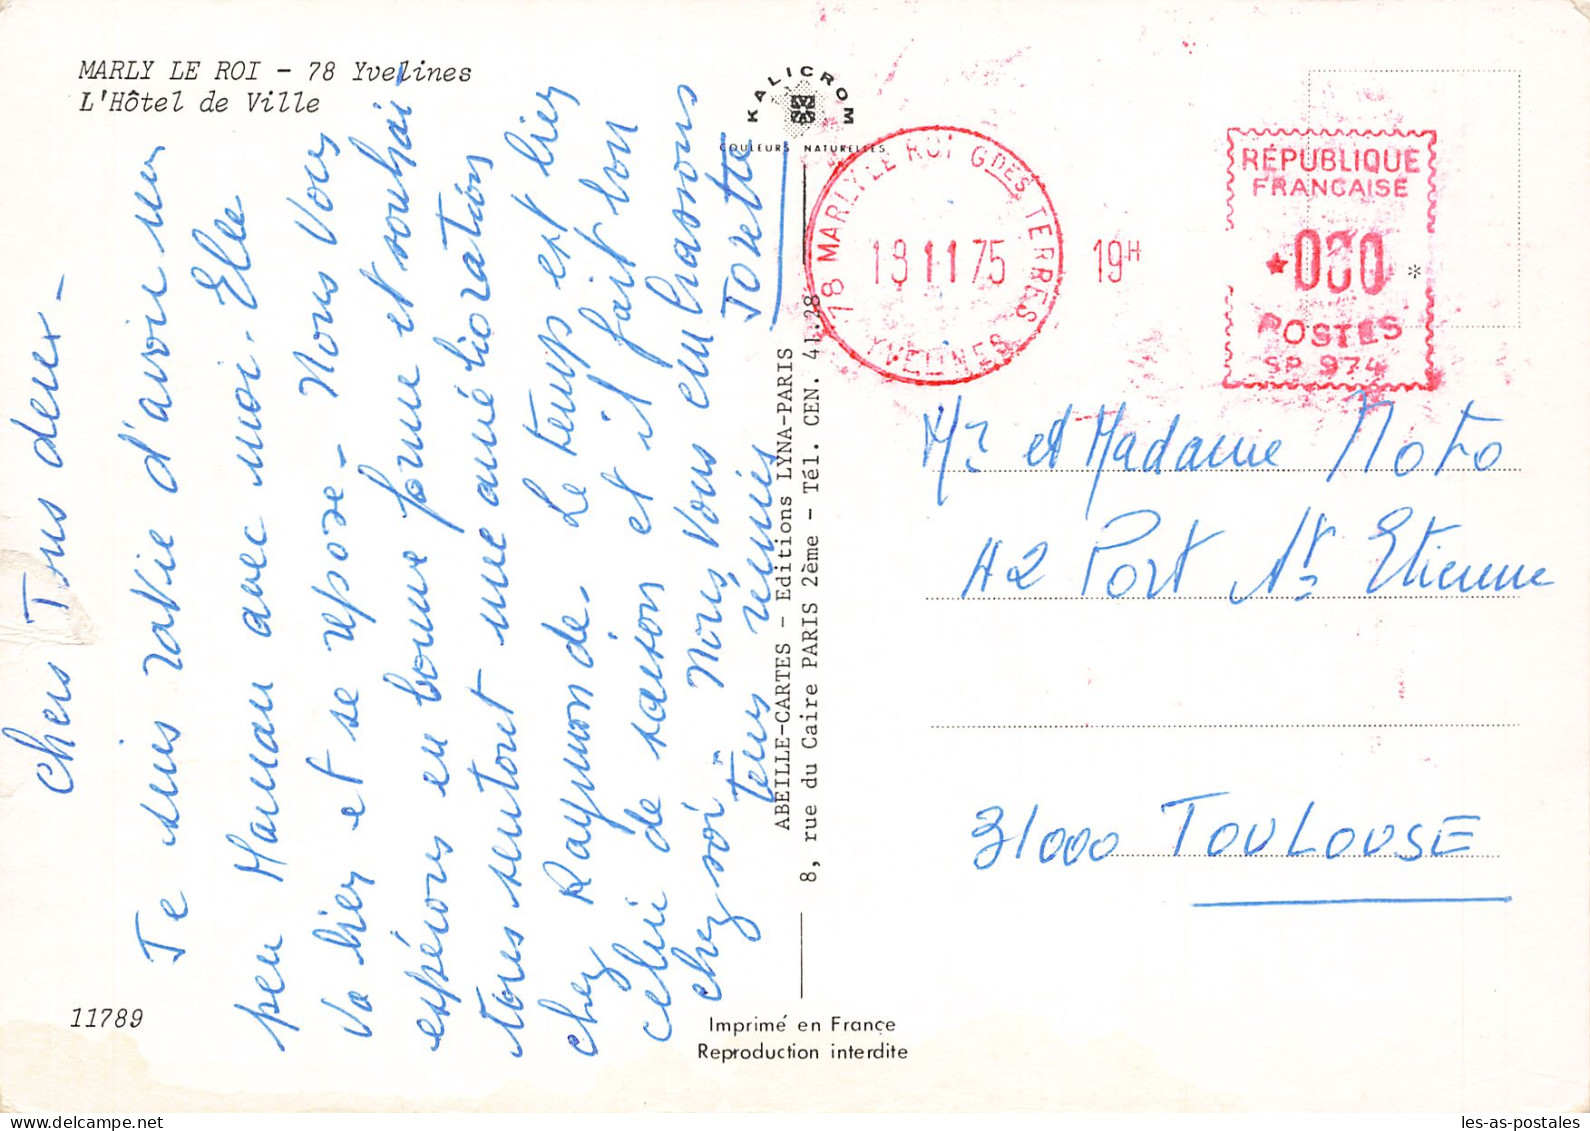 MARLY LE ROI - 78 Yvelines
L'Hôtel de Ville
Chers Tous deux -
Je suis ravie d'avoir un
peu Maman avec moi. Elle
va bien et se repose - Nous Vous
espérons en bonne forme et souhai-
tons surtout une amélioration
chez Raymonde. Le temps est bien
celui de saison et il fait bon
chez soi. Nous Vous embrassons
tous réunis
Josette
KALICROM
COULEURS NATURELLES
ABEILLE-CARTES - Editions LYNA-PARIS
8, rue du Caire PARIS 2ème - Tél. CEN. 41.28
78 MARLY LE ROI GDES TERRES
YVELINES
19H
RÉPUBLIQUE
FRANCAISE
POSTES
SP 974
Mr et Madame Noto
42 Port St Etienne
31000 TOULOUSE
11789
Imprimé en France
Reproduction interdite
les-as-postales